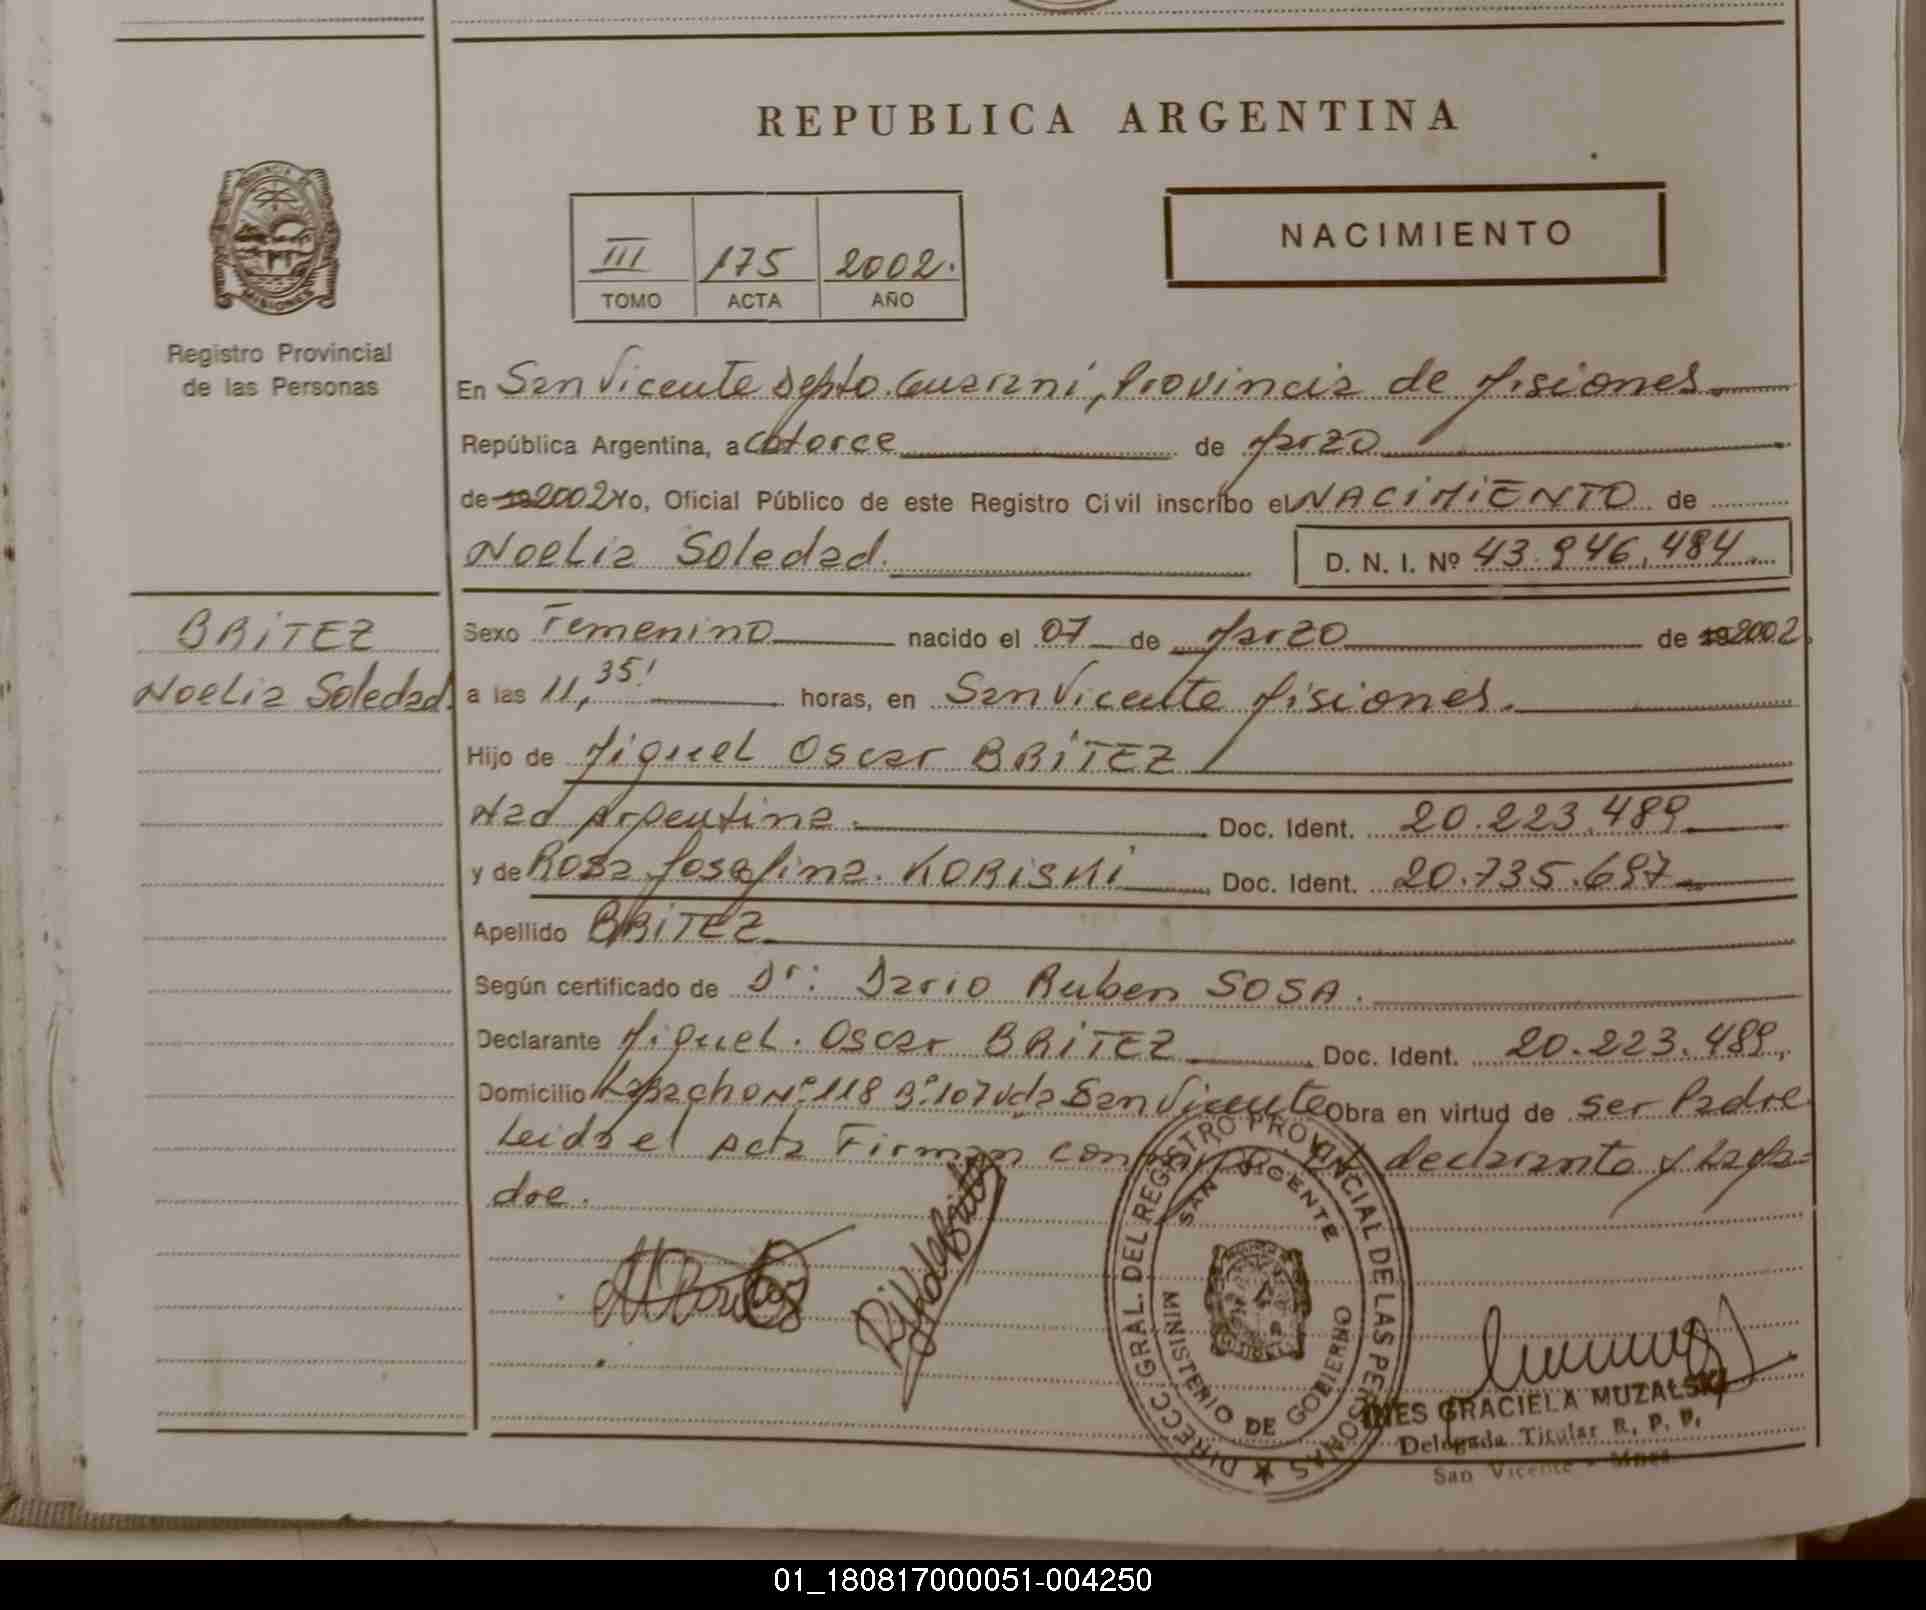 REPUBLICA ARGENTINA
NACIMIENTO
III 175 2002.
TOMO ACTA AÑO
Registro Provincial
de las Personas
En San Vicente Depto. Guaraní, Provincia de Misiones.
República Argentina, a catorce de Marzo
de 19 2002 Yo, Oficial Público de este Registro Civil inscribo el NACIMIENTO de
Noelia Soledad.
D. N. I. Nº 43.946.484
BRITEZ
Noelia Soledad.
Sexo Femenino nacido el 07 de Marzo de 19 2002.
a las 11,35' horas, en San Vicente Misiones.
Hijo de Miguel Oscar BRITEZ
Nad Argentina. Doc. Ident. 20.223.489
y de Rosa Josefina. KORISKI Doc. Ident. 20.735.697
Apellido BRITEZ
Según certificado de Dr: Dario Ruben SOSA.
Declarante Miguel. Oscar BRITEZ Doc. Ident. 20.223.489,
Domicilio Lapacho Nº 118 Bº 107 Vda San Vicente Obra en virtud de ser Padre
Leida el Acta Firman conmigo el declarante y La Ma=
dre.
DIRECC GRAL. DEL REGISTRO PROVINCIAL DE LAS PERSONAS
SAN VICENTE
MINISTERIO DE GOBIERNO
INES GRACIELA MUZALSKI
Delegada Titular R. P. P.
San Vicente - Mnes
01_180817000051-004250